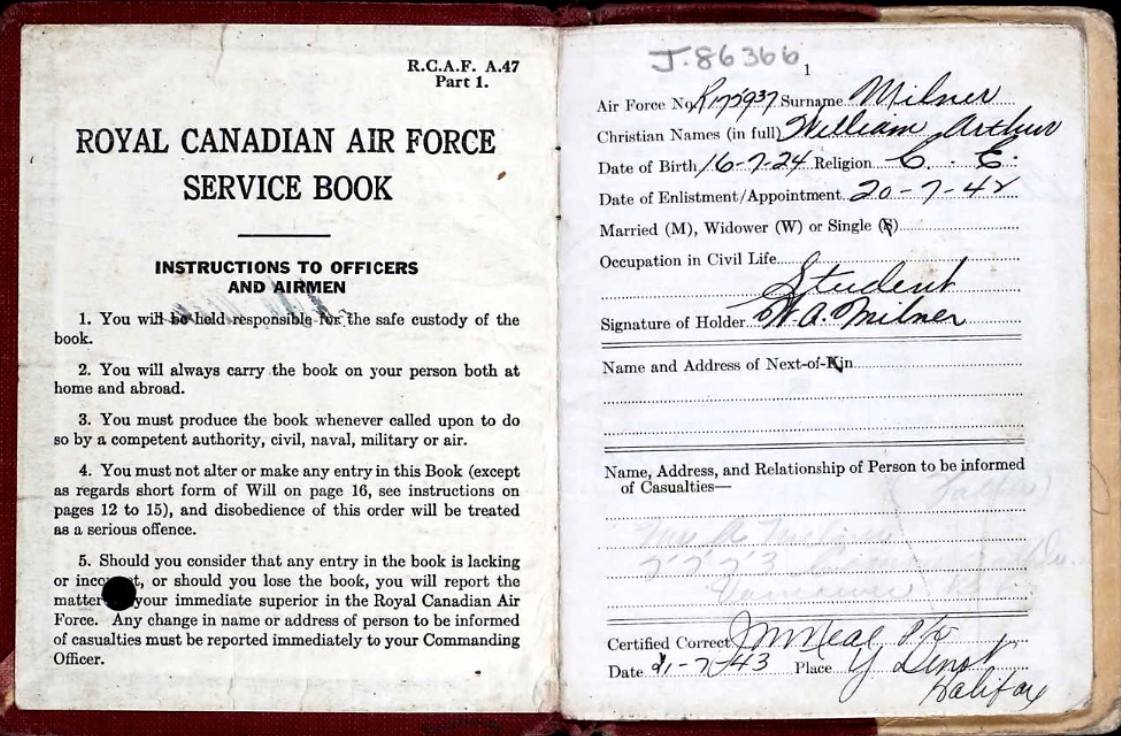 R.C.A.F. A.47
Part 1.
ROYAL CANADIAN AIR FORCE
SERVICE BOOK
INSTRUCTIONS TO OFFICERS
AND AIRMEN
1. You will be held responsible for the safe custody of the
book.
2. You will always carry the book on your person both at
home and abroad.
3. You must produce the book whenever called upon to do
so by a competent authority, civil, naval, military or air.
4. You must not alter or make any entry in this Book (except
as regards short form of Will on page 16, see instructions on
pages 12 to 15), and disobedience of this order will be treated
as a serious offence.
5. Should you consider that any entry in the book is lacking
or incorrect, or should you lose the book, you will report the
matter your immediate superior in the Royal Canadian Air
Force. Any change in name or address of person to be informed
of casualties must be reported immediately to your Commanding
Officer.
J.86366
1
Air Force No. R175937 Surname Milner
Christian Names (in full) William Arthur
Date of Birth 16-7-24 Religion C. E.
Date of Enlistment/Appointment 20-7-42
Married (M), Widower (W) or Single (S)
Occupation in Civil Life
Student
Signature of Holder W. A. Milner
Name and Address of Next-of-Kin
Name, Address, and Relationship of Person to be informed
of Casualties—
(Father)
Milner
Vancouver B.C.
Certified Correct
Date 21-7-43 Place Y Depot
Halifax